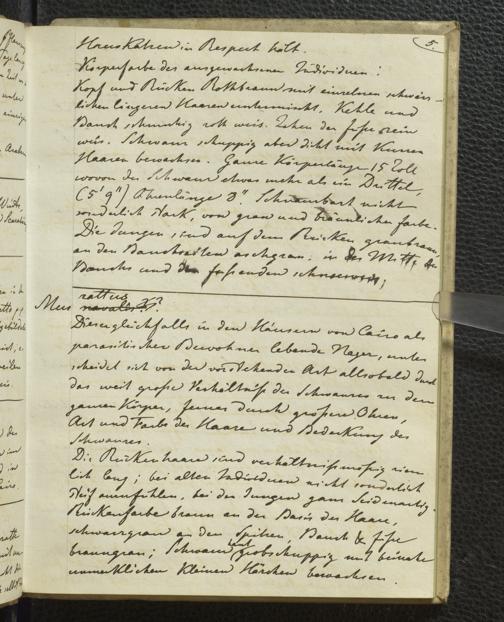 5.
Hauskatzen in Respect hält.
Körperfarbe des ausgewachsenen Individuen:
Kopf und Rücken Rothbraun mit einzelnen schwärz-
lichen längeren Haaren untermischt. Kehle und
Bauch schmutzig roth weis. Zehen der Füße rein
weis. Schwanz schuppig aber dicht mit kurzen
Haaren bewachsen. Ganze Körperlänge 15 Zoll
wovon der Schwanz etwas mehr als ein Drittel,
(5' 9") Ohrenlänge Schnurrbart nicht
sonderlich stark, von grau und bräunlicher Farbe.
Die Jungen sind auf dem Rücken graubraun,
an den Bauchseiten aschgrau, in der Mitte des
Bauchs und
Mus rattus
Dieser gleichfalls in den Häusern von Cairo als
parasitischer Bewohner lebende Nager, unter
scheidet sich von der vorstehenden Art allsobald durch
das weit große Verhältniß des Schwanzes zu dem
ganzen Körper, ferner durch größere Ohren,
Art und Farbe der Haare und Bedeckung des
Schwanzes.
Die Rückenhaare sind verhältnißmäßig ziem
lich lang; bei alten Individuen nicht sonderlich
steif anzufühlen, bei den Jungen ganz seidenartig.
Rückenfarbe braun an der Basis der Haare,
schwarzgrau an den Spitzen, Bauch & Füße
braungrau; Schwanz grobschuppig und beinahe
unmerklichen kleinen Härchen bewachsen.